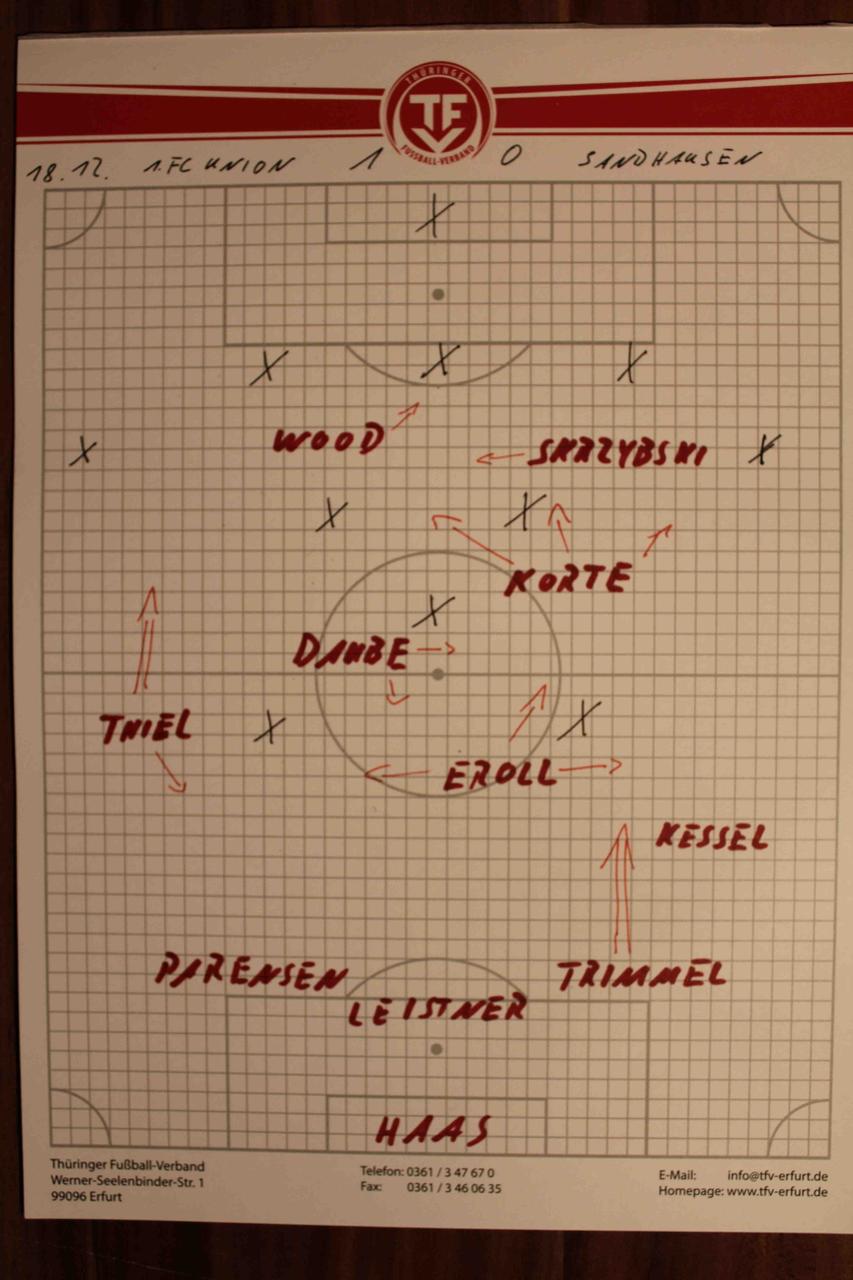 THÜRINGER
TF
FUSSBALL-VERBAND
18.12. 1.FC UNION 1 0 SANDHAUSEN
X
X X X
WOOD
SKRZYBSKI
X X
X X
KORTE
X
DAUBE
THIEL X X
EROLL
KESSEL
PARENSEN TRIMMEL
LEISTNER
HAAS
Thüringer Fußball-Verband
Werner-Seelenbinder-Str. 1
99096 Erfurt
Telefon: 0361 / 3 47 67 0
Fax: 0361 / 3 46 06 35
E-Mail: info@tfv-erfurt.de
Homepage: www.tfv-erfurt.de